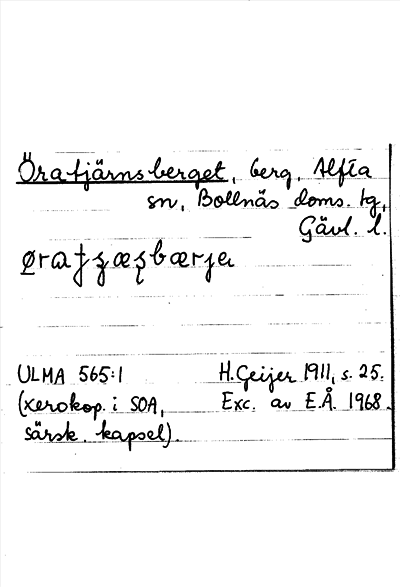 Öratjärnsberget, berg, Alfta
sn, Bollnäs doms. tg,
Gävl. l.
ULMA 565:1 H. Geijer 1911, s. 25.
(xerokop. i SOA, Exc. av E.Å. 1968.
särsk. kapsel).